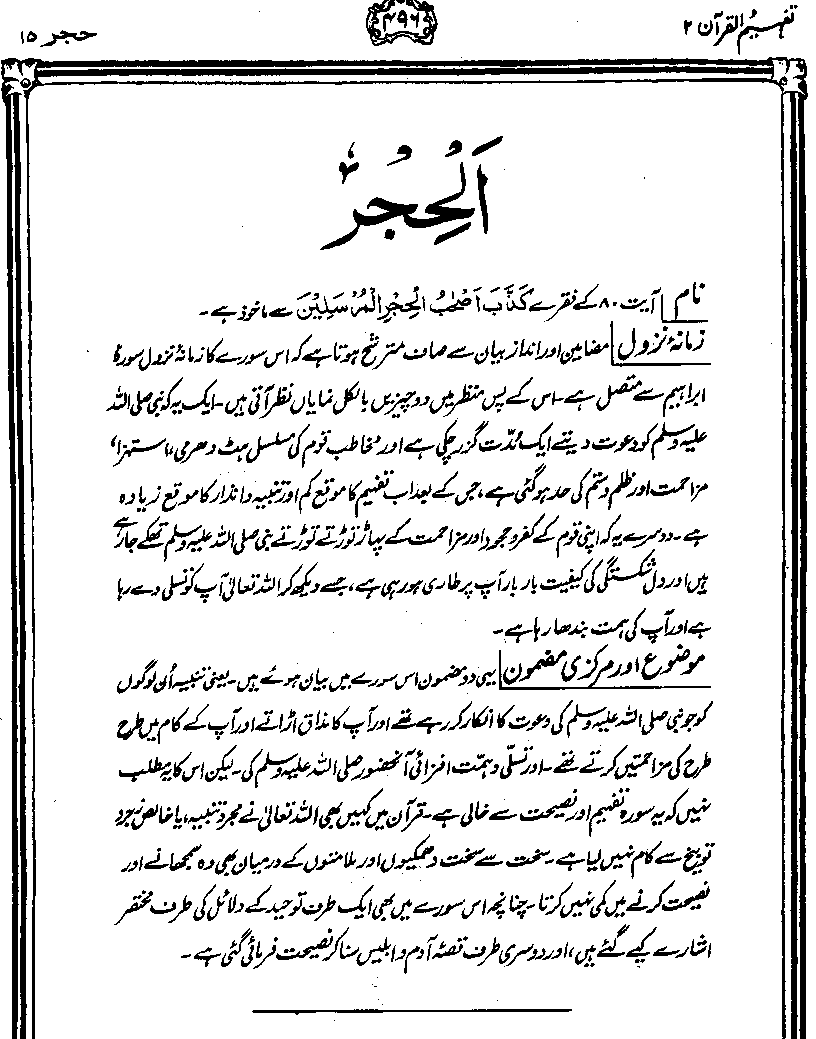 تفہیم القرآن ۲
۴۹۶
حجر ۱۵
اَلْحِجْر
نام آیت ۸۰ کے فقرے كَذَّبَ اَصْحٰبُ الْحِجْرِ الْمُرْسَلِيْنَ سے ماخوذ ہے۔
زمانۂ نزول مضامین اور انداز بیان سے صاف مترشح ہوتا ہے کہ اس سورے کا زمانۂ نزول سورۂ
ابراہیم سے متصل ہے۔ اس کے پس منظر میں دو چیزیں بالکل نمایاں نظر آتی ہیں۔ ایک یہ کہ نبی صلی اللہ
علیہ وسلم کو دعوت دیتے ایک مُدّت گزر چکی ہے اور مخاطب قوم کی مسلسل ہٹ دھرمی، استہزاء،
مزاحمت اور ظلم وستم کی حد ہوگئی ہے، جس کے بعد اب تفہیم کا موقع کم اور تنبیہ و انذار کا موقع زیادہ
ہے۔ دوسرے یہ کہ اپنی قوم کے کفر و جحود اور مزاحمت کے پہاڑ توڑتے توڑتے نبی صلی اللہ علیہ وسلم تھکے جارہے
ہیں اور دل شکستگی کی کیفیت بار بار آپ پر طاری ہورہی ہے، جسے دیکھ کر اللہ تعالیٰ آپ کو تسلی دے رہا
ہے اور آپ کی ہمت بندھا رہا ہے۔
موضوع اور مرکزی مضمون یہی دو مضمون اس سورے میں بیان ہوئے ہیں۔ یعنی تنبیہ اُن لوگوں
کو جو نبی صلی اللہ علیہ وسلم کی دعوت کا انکار کر رہے تھے اور آپ کا مذاق اڑاتے اور آپ کے کام میں طرح
طرح کی مزاحمتیں کرتے تھے۔ اور تسلّی و ہمّت افزائی آنحضور صلی اللہ علیہ وسلم کی۔ لیکن اس کا یہ مطلب
نہیں کہ یہ سورہ تفہیم اور نصیحت سے خالی ہے۔ قرآن میں کہیں بھی اللہ تعالیٰ نے مجرد تنبیہ، یا خالص زجرو
توبیخ سے کام نہیں لیا ہے۔ سخت سے سخت دھمکیوں اور ملامتوں کے درمیان بھی وہ سمجھانے اور
نصیحت کرنے میں کمی نہیں کرتا۔ چنانچہ اس سورے میں بھی ایک طرف توحید کے دلائل کی طرف مختصر
اشارے کیے گئے ہیں، اور دوسری طرف قصۂ آدم و ابلیس سنا کر نصیحت فرمائی گئی ہے۔